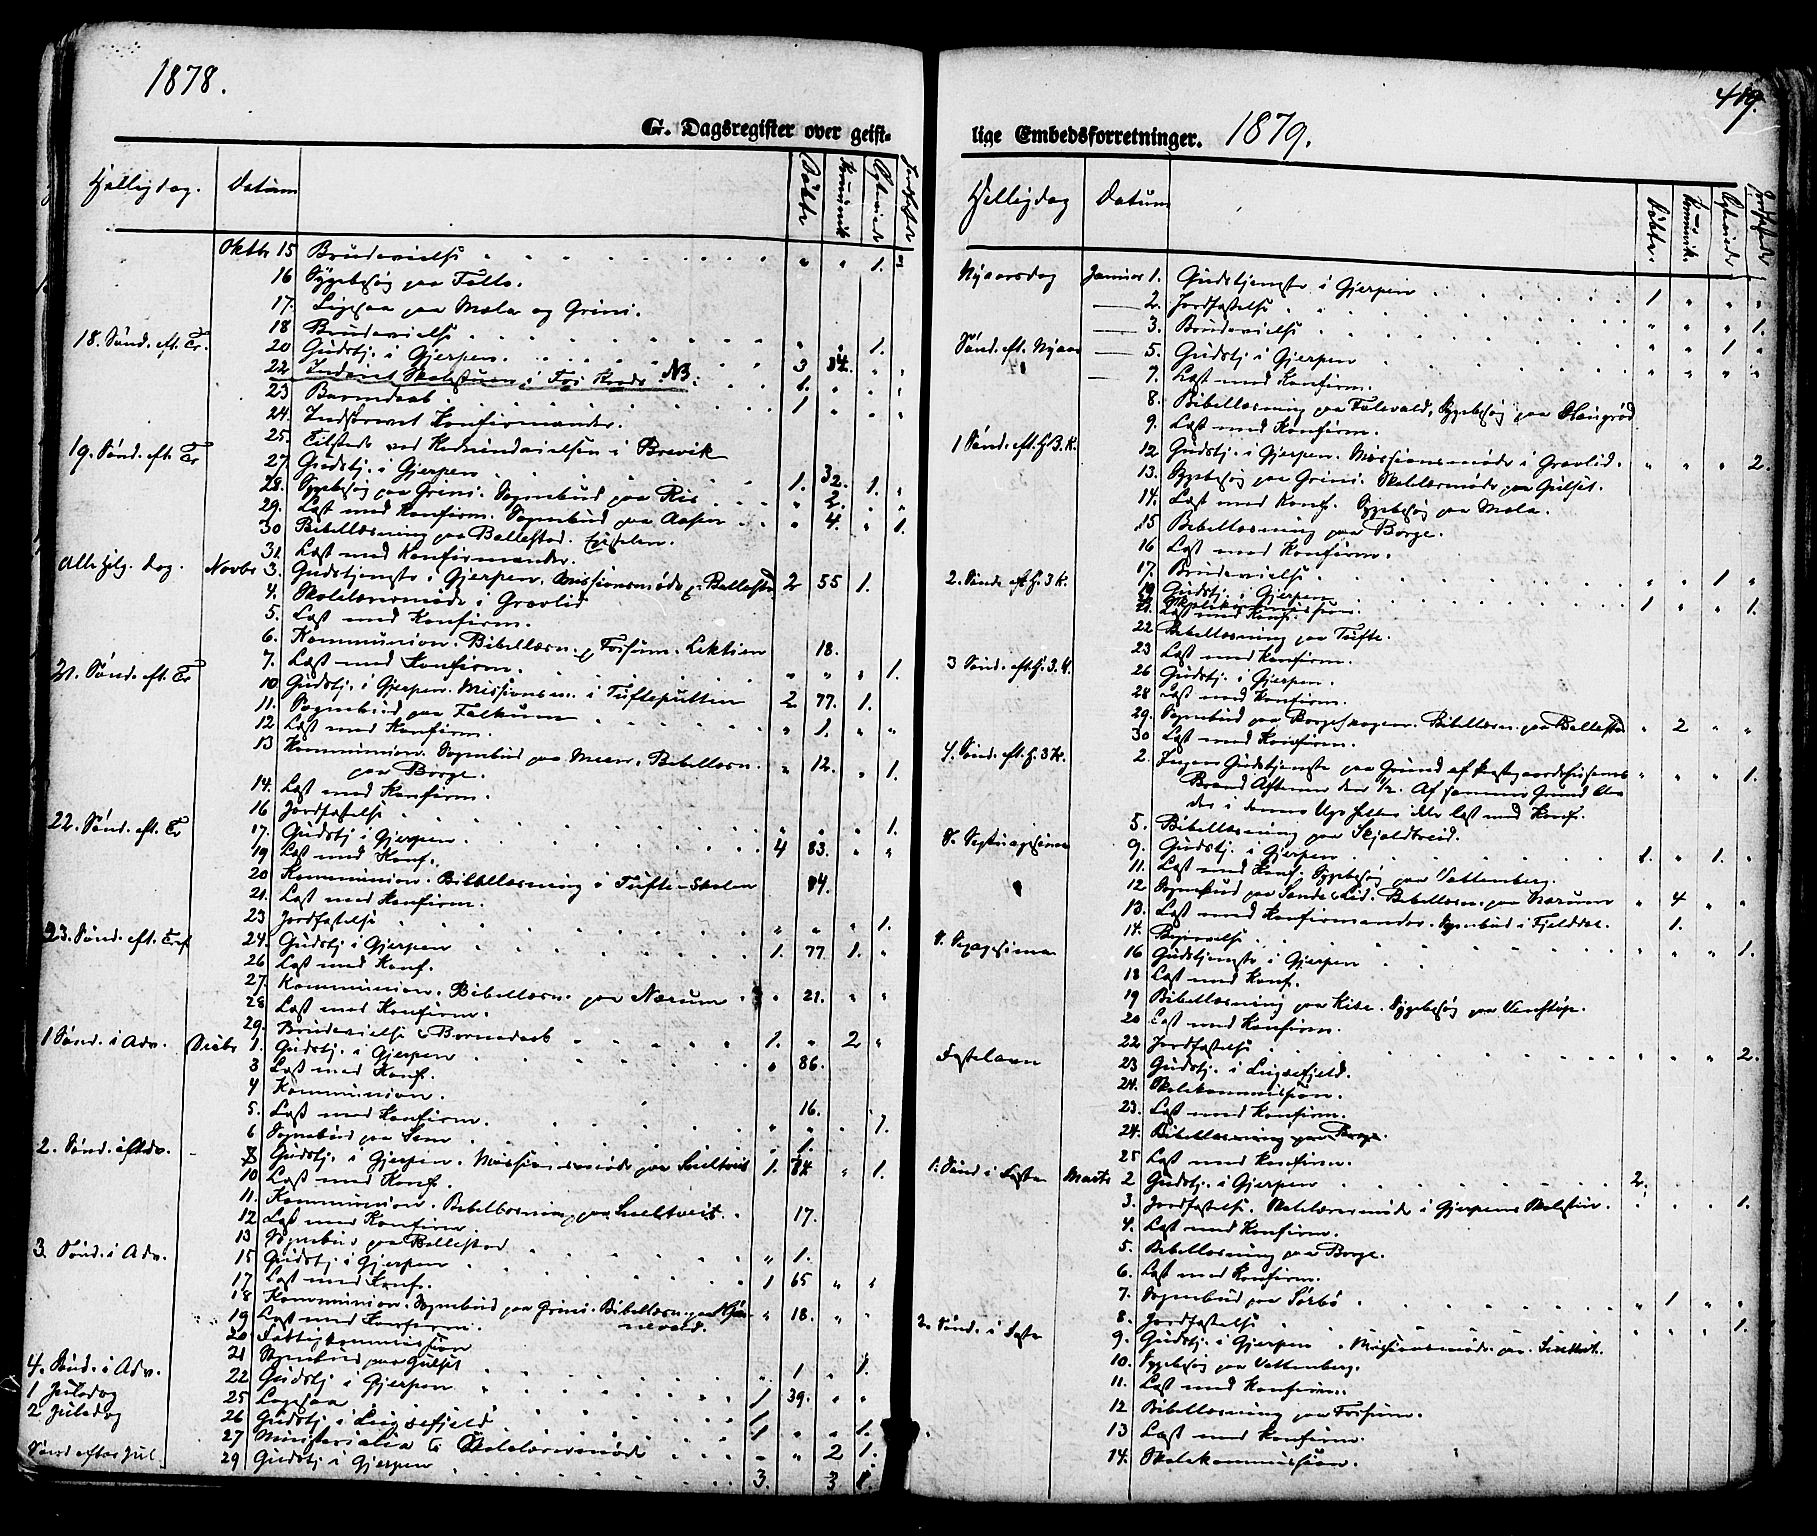 1878.
G. Dagsregister over geist-
Helligdag. Datum Døbte Kommunik Egteviede Jordfæstede
Oktbr 15 Brudevielse " " 1.
16 Sygebesøg paa Follo.
17. Ligesaa paa Mæla og Grini.
18 Brudevielse " " 1.
18. Sønd. eft. Tr. 20 Gudstj. i Gjerpen. 3 84. " "
22 Indviet Skolestuen i NB. 1. " "
23 Barnedaab 1 " " "
24. Indskrevet Konfirmander.
25. Tilstede ved Kirkeindvielsen i Brevik
19. Sønd. eft. Tr 27 Gudstj. i Gjerpen 1. 32. 1. "
28. Sygebesøg paa Grini. Sognebud paa Ris " 2. " "
29. Læst med Konfirm. Sognebud paa Aaser " 4. " 1.
30 Bibellæsning paa Ballestad.
31. Læst med Konfirmander.
Alle Helg. dag. Novbr 3. Gudstjeneste i Gjerpen. Missionsmøde p. Ballestad 2 55 1.
4. Skolelærermøde i Gravlid
5. Læst med Konfirm.
6. Kommunion. Bibellæsn. p. Fossum. Lektien 18.
7. Læst med Konfirm. " " " 1.
21. Sønd. eft. Tr 10 Gudstj. i Gjerpen. Missionsm. i Tufteputten 2 77. 1.
11. Sognebud paa Falkum " 1. " "
12 Læst med Konfirm.
13 Kommunion. Sognebud paa Meen. Bibellæsn. " 12. " 1.
paa Borge.
14. Læst med Konfirm.
16 Jordfæstelse " " " 1.
22. Sønd. eft. Tr 17. Gudstj. i Gjerpen 4 83. " "
19 Læst med Konf.
20 Kommunion. Bibellæsning i Tufte-Skolen 84.
21. Læst med Konfirm.
23 Jordfæstelse " " " 1.
23. Sønd. eft. Tref 24. Gudstj. i Gjerpen 1. 77 1. "
26 Læst med Konf.
27. Kommunion. Bibellæsn. paa Narum " 21. " "
28 Læst med Konfirm.
29. Brudevielse & Barnedaab 1. " 2 "
1 Sønd. i Adv. Decbr 1. Gudstj. i Gjerpen " 86.
3 Læst med Konf.
4 Kommunion. 16.
5. Læst med Konfirm.
6 Sognebud paa Sem " 1.
2. Sønd. i Adv. 8 Gudstj. i Gjerpen. Missionsmøde paa Lueltveit 1. 74 " 1.
10 Læst med Konf.
11. Kommunion. Bibellæsning paa Lueltveit. 17.
12 Læst med Konfirm.
13 Sognebud paa Ballestad " 1.
3. Sønd. i Adv. 15 Gudstj. i Gjerpen 1 65 " "
17 Læst med Konf.
18 Kommunion. Sognebud paa Grini. Bibellæsn. paa " 18. " "
19 Læst med Konfirm.
20 Fattigkommission
21 Sognebud paa Gulset " 1 " 1.
4. Sønd. i Adv. 22 Gudstj. i Gjerpen 1 39. " "
1 Juledag 25 Ligesaa 1
2 Juledag 26 Gudstj. i Luxefjeld 1 " " 1.
27 Ministerialia & Skolelærermøde " " 2 1.
Sønd. efter Jul 29 Gudstj. i Gjerpen 3. 3 1.
419.
lige Embedsforretninger. 1879.
Helligdag Datum Døbte Kommunik. Egteviede Jordfæstede
Nyaarsdag Januar 1. Gudstjeneste i Gjerpen 1 " " "
2. Jordfæstelse " " " 1.
3. Brudevielse " " 1 "
Sønd. eft. Nyaar 5. Gudstj. i Gjerpen " " " "
7. Læst med Konfirm.
8. Bibellæsning paa Falevald. Sygebesøg paa
9. Læst med Konfirm.
1 Sønd. eft. H. 3 K. 12 Gudstj. i Gjerpen. Missionsmøde i Gravlid. " " " 2.
13. Sygebesøg paa Grini. Skolelærermøde paa Gulset.
14. Læst med Konf. Sygebesøg paa Mæla.
15 Bibellæsning paa Borge.
16 Læst med Konfirm.
17. Brudevielse " " 1 "
2. Sønd. eft. H. 3 K. 19 Gudstj. i Gjerpen 1 " " 1.
Skolekommission.
21. Læst med Konf.
22 Bibellæsning paa Tufte.
23 Læst med Konfirm.
3 Sønd. eft. H. 3. K. 26 Gudstj. i Gjerpen.
28 Læst med Konfirm.
29. Sognebud paa Borgeskogen. Bibellæsn. paa Ballestad " 2 " "
30 Læst med Konfirm.
4. Sønd. eft. H. 3 K. 2. Ingen Gudstjeneste paa Grund af Præstegaardshusenes " " " 1.
Brand Aftenen den 1/2. Af samme Grund blev
der i denne Uge heller ikke læst med Konf.
5. Bibellæsning paa Skjeldbreid.
S. Septuagesima 9. Gudstj. i Gjerpen 1. " 1. "
11. Læst med Konf. Sygebesøg paa Vattenberg.
12 Sognebud paa Sanda Lid. Bibellæsn. paa Narum " 4 " "
13. Læst med Konfirmander. Sognebud i Fjelddal. 1.
14. Begravelse
S. Sexagesima 16 Gudstjeneste i Gjerpen " " " 1.
18 Læst med Konf.
19 Bibellæsning paa Kise. Sygebesøg paa Venstøp.
20 Læst med Konfirm.
22 Jordfæstelse " " " 2.
Fastelavn 23 Gudstj. i Luxefjeld.
24. Skolekommission.
23. Læst med Konfirm.
24. Bibellæsning paa Borge.
25 Læst med Konfirm.
1. Sønd i Faste Marts 2 Gudstj. i Gjerpen 2.
3. Jordfæstelse. Skolelærermøde i Gjerpens Skolestue. " " " 1.
4. Læst med Konfirm.
5. Bibellæsning paa Borge.
6. Læst med Konfirm.
7. Sognebud paa Sørbø. " 1 " "
8. Jordfæstelse " " " 1.
2. Sønd. i Faste 9. Gudstj. i Gjerpen. Missionsmøde paa Lueltveit.
10. Sygebesøg paa Vattenberg.
11. Læst med Konfirm.
12 Bibellæsning paa Fossum.
13 Læst med Konfirm.
14. Skolekommission.